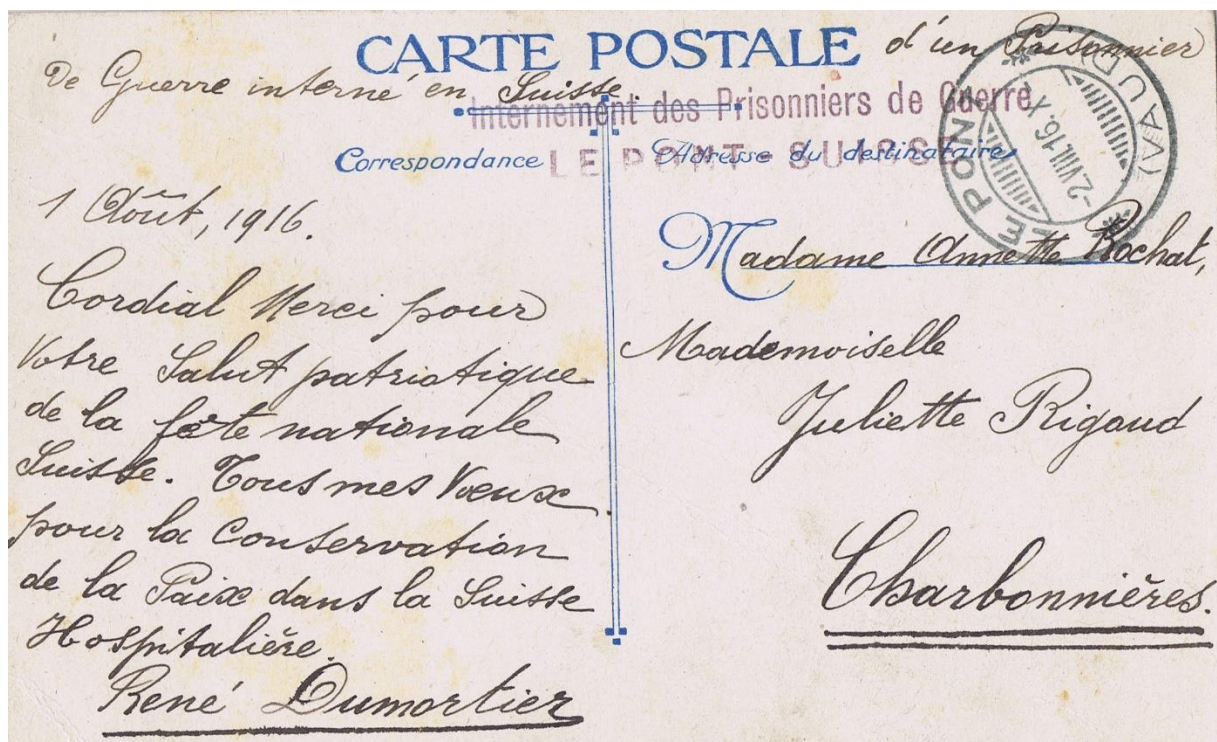 CARTE POSTALE d'un Prisonnier
De Guerre interné en Suisse.
Internement des Prisonniers de Guerre
LE PONT - SUISSE
Correspondance
Adresse du destinataire
LE PONT (VAUD)
-2.VIII.16.X
1 Août, 1916.
Cordial Merci pour
Votre Salut patriotique
de la fête nationale
Suisse. Tous mes Vœux
pour la Conservation
de la Paix dans la Suisse
Hospitalière.
René Dumortier
Madame Annette Rochat,
Mademoiselle
Juliette Rigaud
Charbonnières.